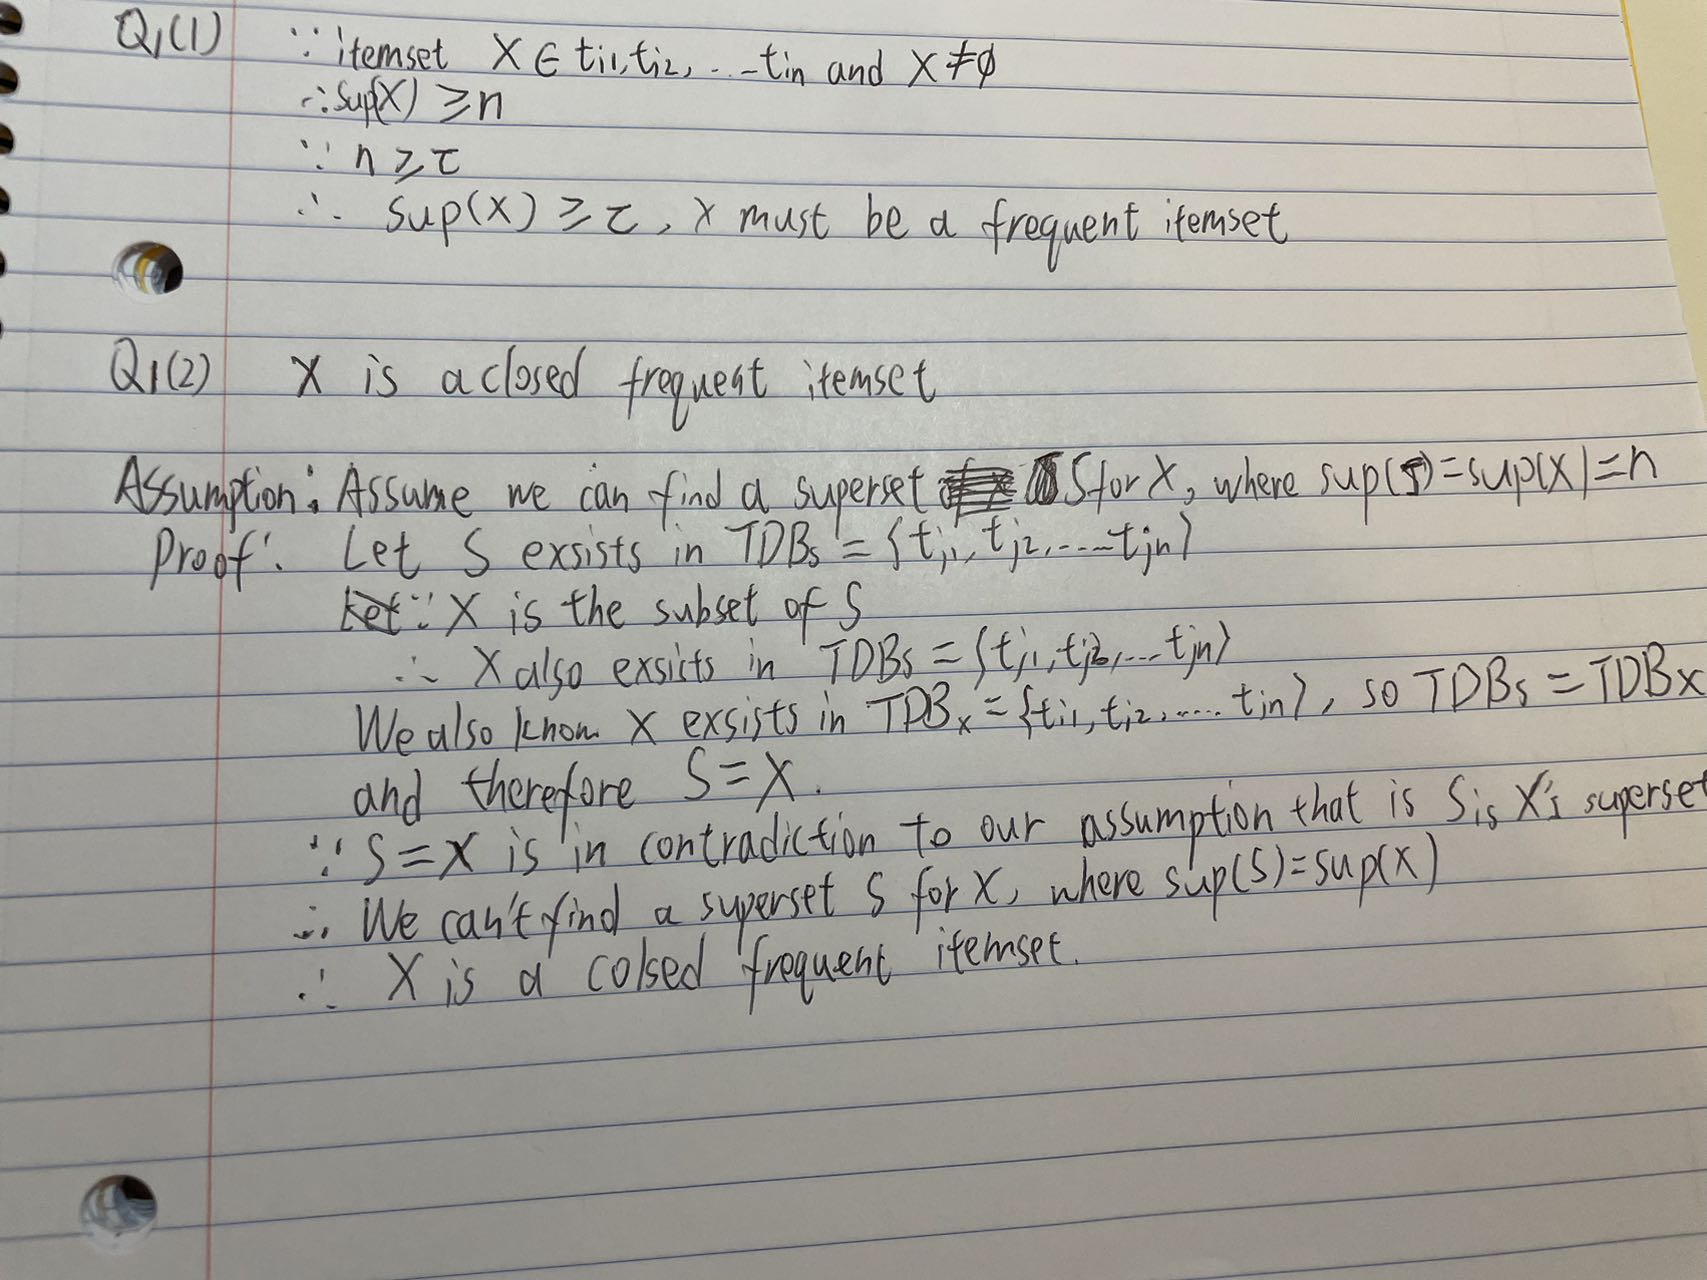 Q1(1) ∵ itemset X ∈ ti1, ti2, ... tin and X ≠ ∅
∴ sup(X) ≥ n
∵ n ≥ τ
∴ sup(X) ≥ τ, X must be a frequent itemset
Q1(2) X is a closed frequent itemset
Assumption: Assume we can find a superset S for X, where sup(S)=sup(X)=n
Proof: Let S exsists in TDBs = {tj1, tj2, ..... tjn}
∵ X is the subset of S
∴ X also exsists in TDBs = {tj1, tj2, ... tjn}
We also know X exsists in TDBx = {ti1, ti2, ..... tin}, so TDBs = TDBx
and therefore S = X.
∵ S = X is in contradiction to our assumption that is S is X's superset
∴ We can't find a superset S for X, where sup(S)=sup(X)
∴ X is a colsed frequent itemset.